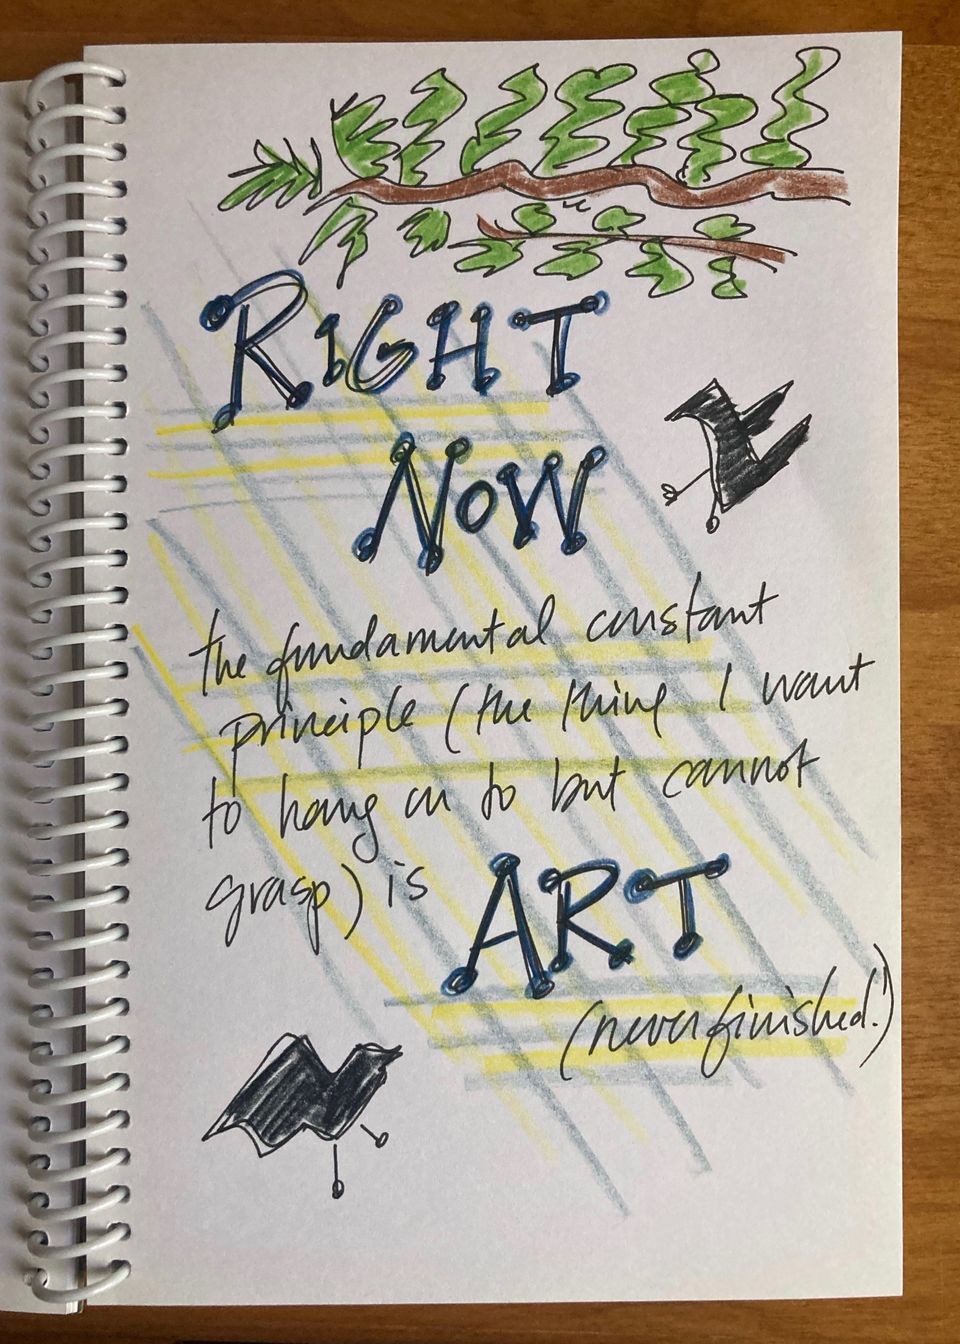 RIGHT
NOW
the fundamental constant
principle (the thing I want
to hang on to but cannot
grasp) is ART
(never finished!)